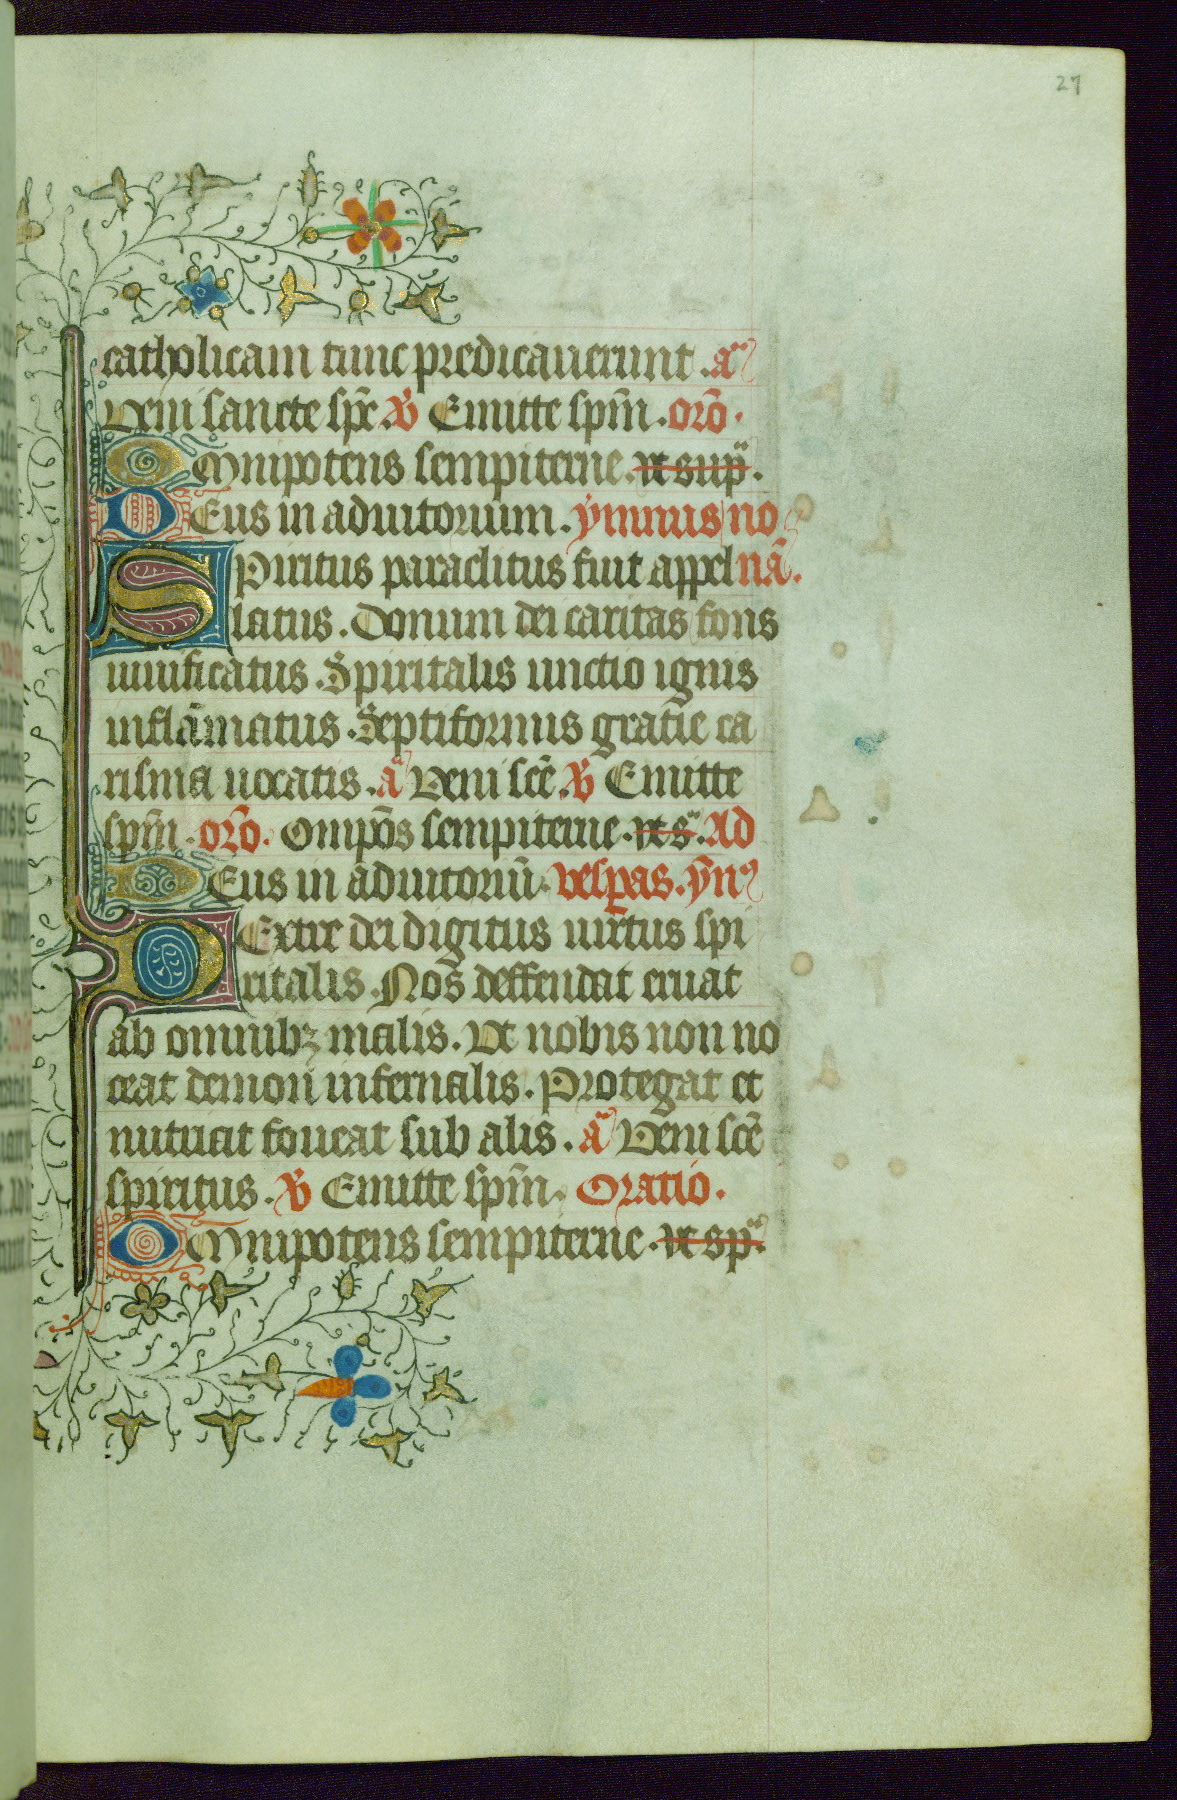 27
catholicam tunc predicauerunt. a͞
Veni sancte sp̄e. ℣ Emitte sp̄m. or̄o.
Omnipotens sempiterne. vt sup̄.
Deus in adiutorium. ymnus no
Spiritus paraclitus fuit appel nā.
latus. Donum dei caritas fons
uiuificatus. Spiritalis unctio ignis
inflāmatus. Septiformis gratie ca
risma uocatis. ā Veni sc̄e. ℣ Emitte
sp̄m. or̄o. Omīpo̅s sempiterne. vt s̄. Ad
Deus in adiutoriū. vesꝑas. ȳn9
Dextre dei digitus uirtus spi
ritalis. Nos deffendat eruat
ab omnibꝫ malis. Vt nobis non no
ceat demon infernalis. Protegat et
nutriat foueat sub alis. ā Veni sc̄e
spiritus. ℣ Emitte sp̄m. Oratio.
Omnipotens sempiterne. vt sp̄.